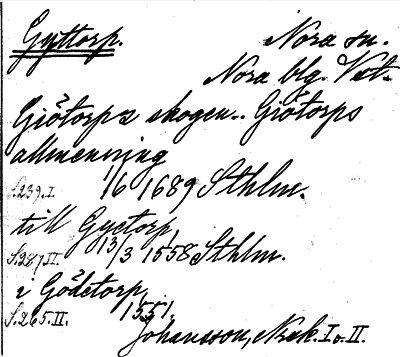 Gyttorp. Nora sn.
Nora blg. Vst.
Giötorpz skogen.. Giötorps
allmenning
S.239.I. 1/6 1689 Sthlm.
till Gyetorp,
S.287 II. 13/3 1558 Sthlm.
i Gödetorp,
S.265.II. 1551,
Johansson, Norask. I o. II.